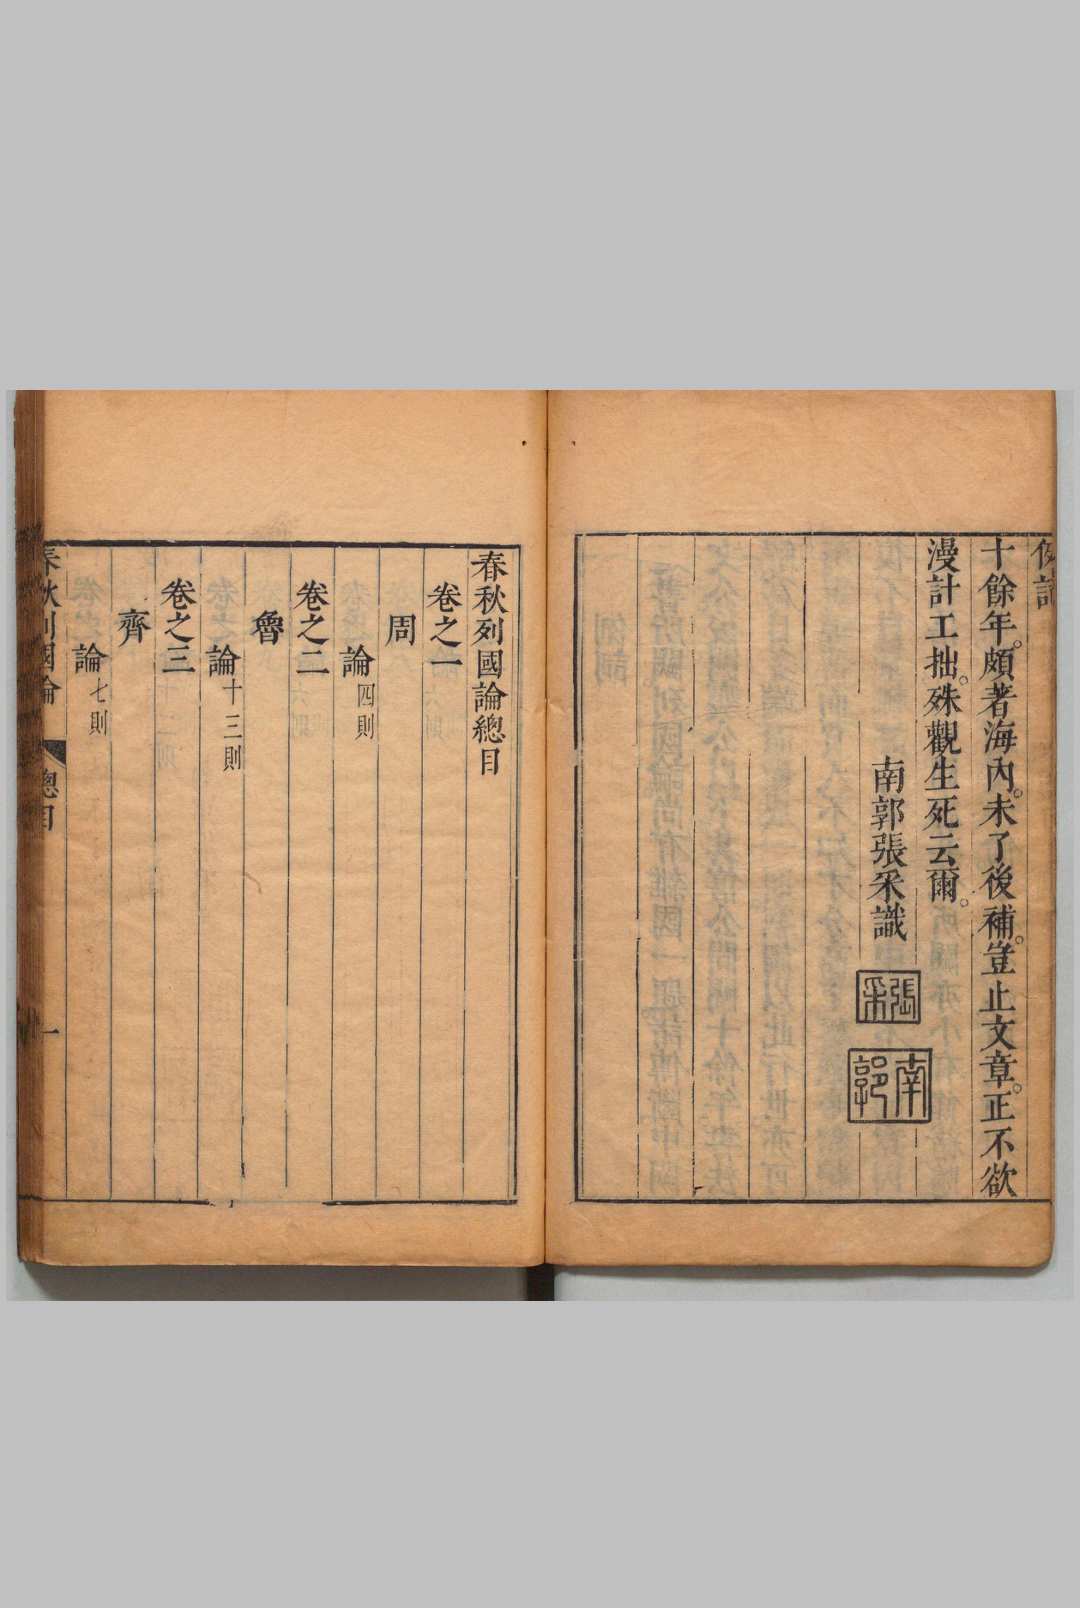 十餘年。頗著海內。未了後補。豈止文章。正不欲
漫計工拙。殊觀生死云爾。
南郭張采識
張采
南郭
春秋列國論總目
卷之一
周
論四則
卷之二
魯
論十三則
卷之三
齊
論七則
春秋列國論 總目 一